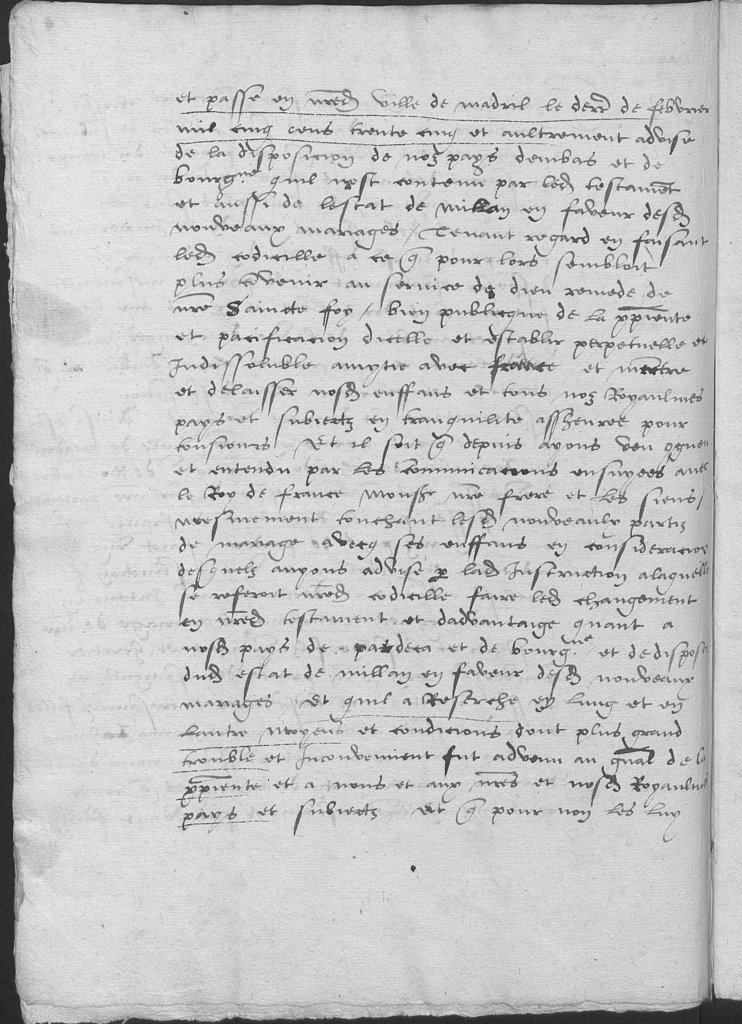 et passe en nred ville de madril le derr de febvrier
mil cinq cens trente cinq et aultrement advise
de la disposicion de noz pays dembas et de
bourgne quil nest contenu par led testamet
et aussi de lestat de millan en faveur desd
nouveaux mariages / Tenant regard en faisant
led codicille a ce q pour lors sembloit
plus convenir au service de dieu remede de
nre Saincte foy / bien publicque de la xpiente
et pacificacion dicelle et establir perpetuelle et
Indissoluble amytie avec france et mectre
et delaisser nosd enffans et tous noz Royaulmes
pays et subiectz en tranquilite assheuree pour
tousiours Et il soit q depuis ayons veu
et entendu par les communicacions ensuyees avec
le Roy de france monsr nre frere et les siens /
mesmement touchant lesd nouveaulx partiz
de mariage avecq ses enffans en consideracion
desquelz avyons advise p lad Instruction a laquelle
se referoit nred codicille faire led changement
en nred testament et dadvantaige quant a
nosd pays de pardeca et de bourgne et de disposer
dud estat de millan en faveur desd nouveaux
mariages Et quil a Reserche en lung et en
lautre moyens et condicions dont plus grand
trouble et Inconvenient fut advenu au gnal de la
xpiente et a nous et aux nres et nosd Royaulmes
pays et subiectz Et q pour non les luy